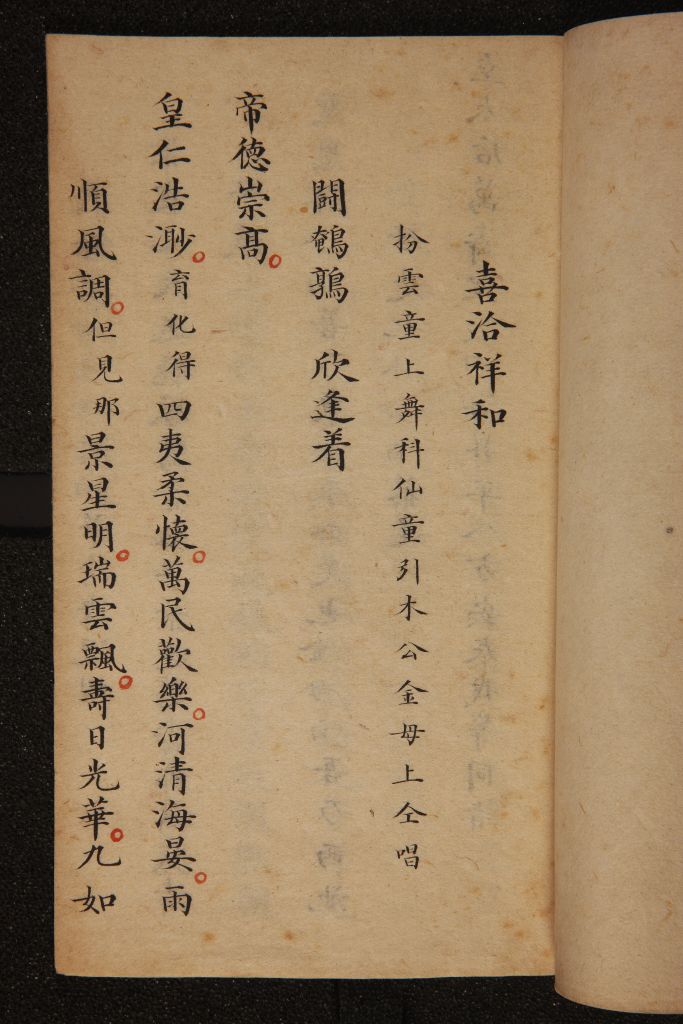 喜洽祥和
扮雲童上舞科仙童引木公金母上仝唱
鬪鵪鶉 欣逢着
帝德崇髙。
皇仁浩渺。育化得四夷柔懷。萬民歡樂。河清海晏。雨
順風調。但見那景星明。瑞雲飄。壽日光華。九如